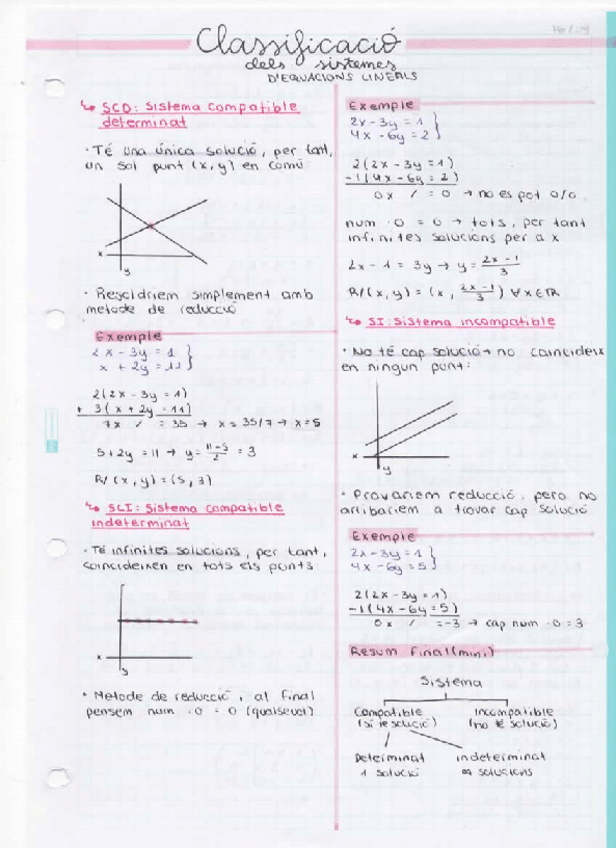 16/04
Classificació
dels sistemes
D'EQUACIONS LINEALS
↳ SCD: Sistema compatible
determinat
· Té una única solució, per tant,
un sol punt (x, y) en comú
x
y
· Resoldriem simplement amb
metode de reducció
Exemple
2x - 3y = 1 }
x + 2y = 11 }
2(2x - 3y = 1)
+ 3(x + 2y = 11)
7x / = 35 → x = 35/7 → x = 5
5 + 2y = 11 → y = 11-5/2 = 3
R/ (x, y) = (5, 3)
↳ SLI: Sistema compatible
indeterminat
· Té infinites solucions, per tant,
coincideixen en tots els punts
x
y
· Metode de reducció, al final
pensem num · 0 = 0 (qualsevol)
Exemple
2x - 3y = 1 }
4x - 6y = 2 }
2(2x - 3y = 1)
-1(4x - 6y = 2)
0x / = 0 → no es pot 0/0
num · 0 = 0 → tots, per tant
infinites solucions per a x
2x - 1 = 3y → y = 2x-1/3
R/(x, y) = (x, 2x-1/3) ∀x∈ℝ
↳ SI: Sistema incompatible
· No té cap solució → no coincideix
en ningun punt:
x
y
· Provariem reducció, pero no
arribariem a trovar cap solució
Exemple
2x - 3y = 1 }
4x - 6y = 5 }
2(2x - 3y = 1)
-1(4x - 6y = 5)
0x / = -3 → cap num · 0 = 3
Resum final (mini)
Sistema
Compatible Incompatible
(sí té solució) (no té solució)
Determinat indeterminat
1 solució ∞ solucions